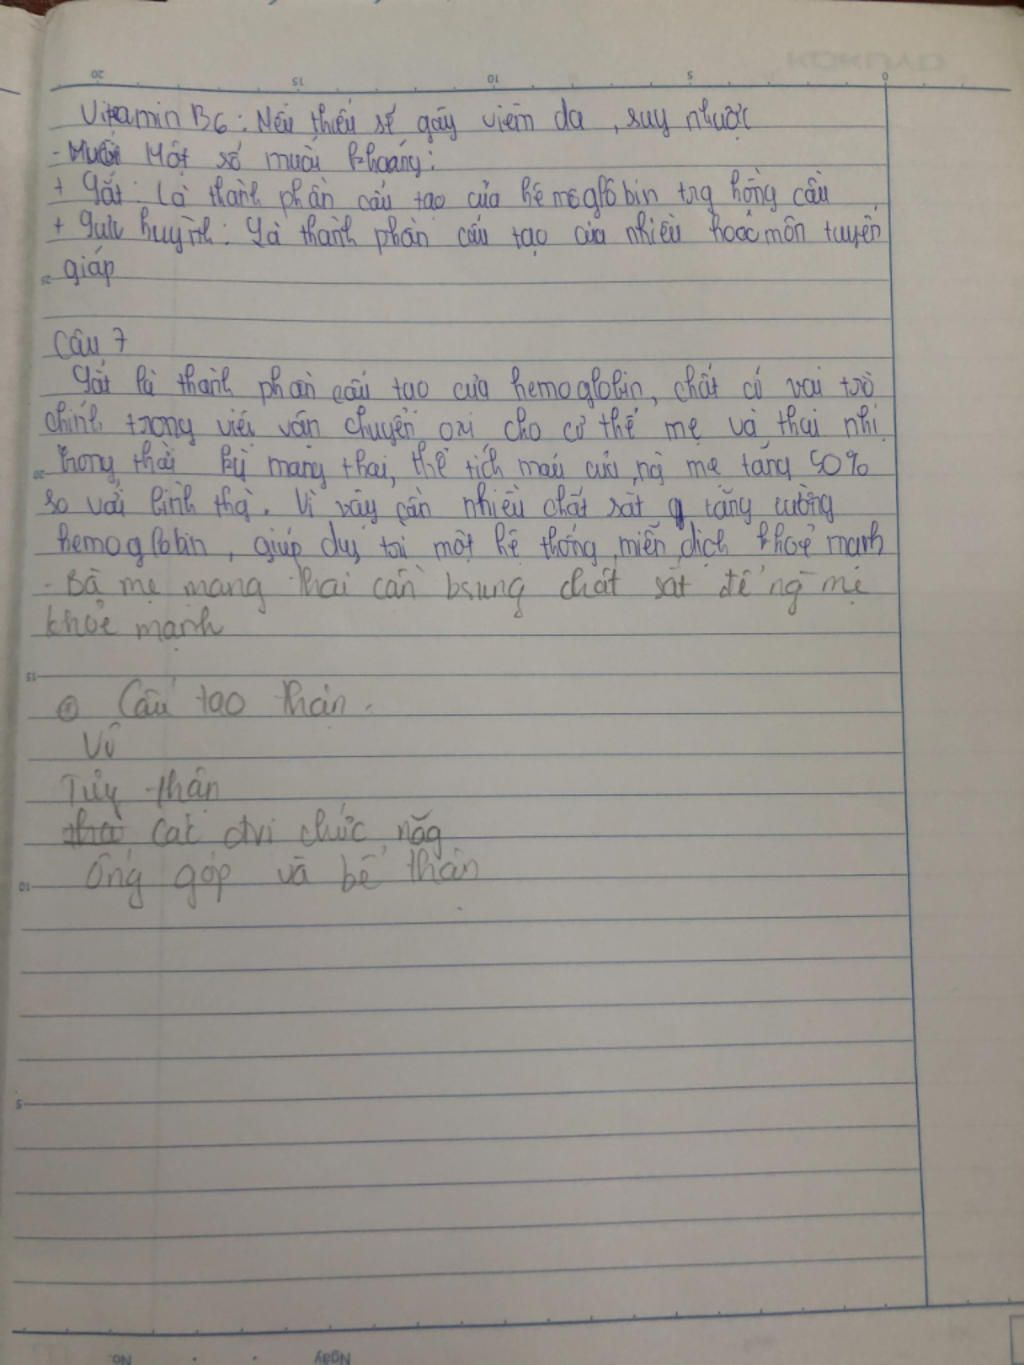 Vitamin B6: Nếu thiếu sẽ gây viêm da, suy nhược
- Một số muối khoáng:
+ Sắt: Là thành phần cấu tạo của hêmôglôbin trg hồng cầu
+ huỳnh: Là thành phần cấu tạo của nhiều hoócmôn tuyến
giáp
Câu 7
Sắt là thành phần cấu tạo của hemoglobin, chất có vai trò
chính trong việc vận chuyển oxi cho cơ thể mẹ và thai nhi
Trong thời kỳ mang thai, thể tích máu của ng mẹ tăng 50%
so với bình thg. Vì vậy cần nhiều chất sắt tăng cường
hemoglobin, giúp duy trì một hệ thống miễn dịch khoẻ mạnh
- Bà mẹ mang thai cần bsung chất sắt để ng mẹ
khỏe mạnh
Cấu tạo thận.
Vỏ
Tủy thận
Các đvi chức năg
Ống góp và bể thận
20
15
10
5
0
20
15
10
5
No.
Ngày